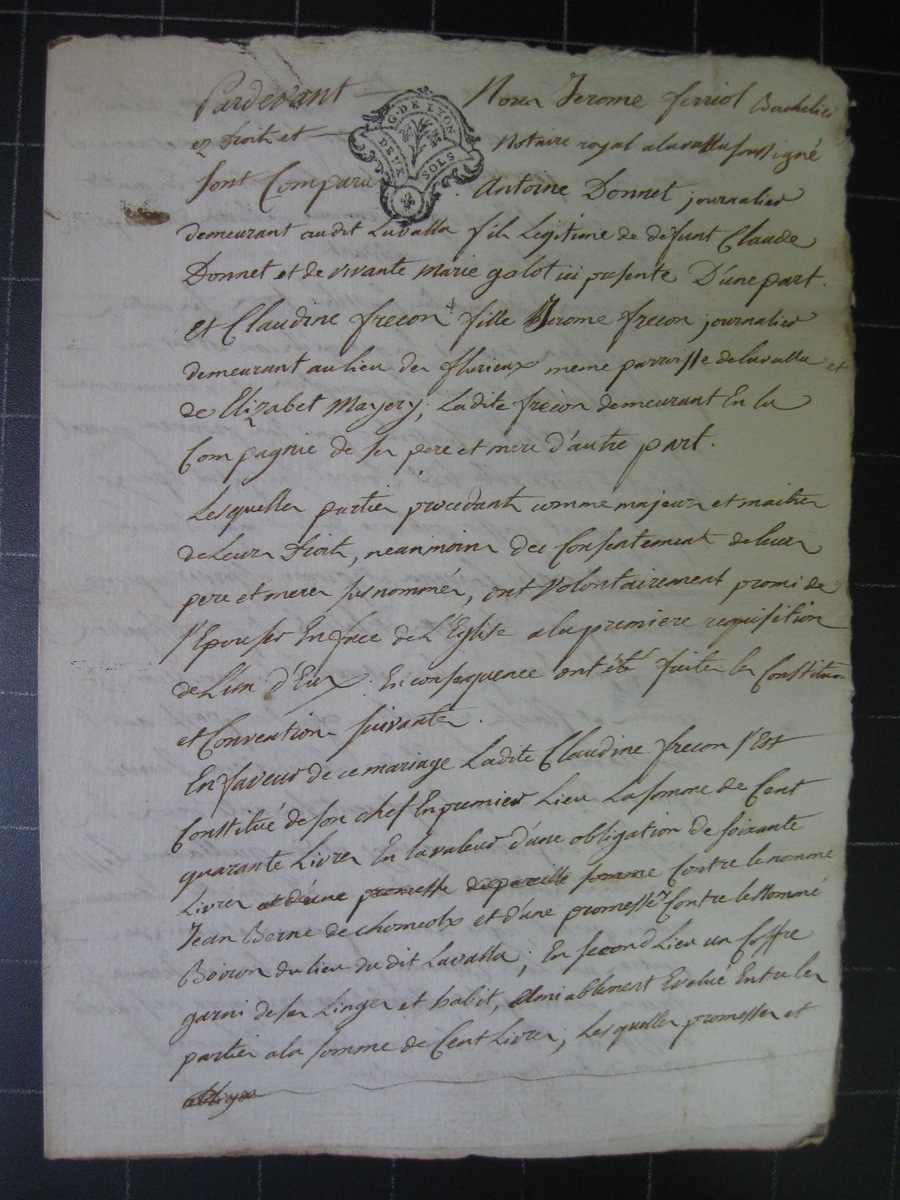 Pardevant Nous Jerome ferriol Bachelier
G. DE LYON
DEUX SOLS
ez droit et Notaire royal a lavalla soussigné
sont Comparu Antoine Donnet journalier
demeurant audit Lavalla fils Legitime de defunt Claude
Donnet et de vivante Marie galot ici presente D'une part.
Et Claudine frecon fille Jerome frecon journalier
demeurant au lieu des flurieux meme parroisse de lavalla et
de Elizabet Mayery; Ladite frecon demeurant En la
Compagnie de ses pere et mere d'autre part.
Lesquelles parties procedant comme majeurs et maitres
de Leurs droits, neanmoins des Consentement de leurs
pere et meres susnommés, ont Volontairement promi de
s'Epouser En face de L'Eglise a la premiere requisition
de L'un d'Eux. En consequence ont été faites les Constitution
et Convention suivantes.
En faveur de ce mariage Ladite Claudine frecon s'Est
Constitué de son chef En premier Lieu La somme de Cent
quarante Livres En la valeur d'une obligation de soixante
Livres et d'une promesse de pareille somme Contre le nommé
Jean Berne de chomeolx et d'une promesse Contre le Nommé
Boiron du lieu du dit Lavalla; En second Lieu un Coffre
garni de ses Linges et habit, amiablement Evalué Entre les
parties a la somme de Cent Livres, Lesquelles promesses et